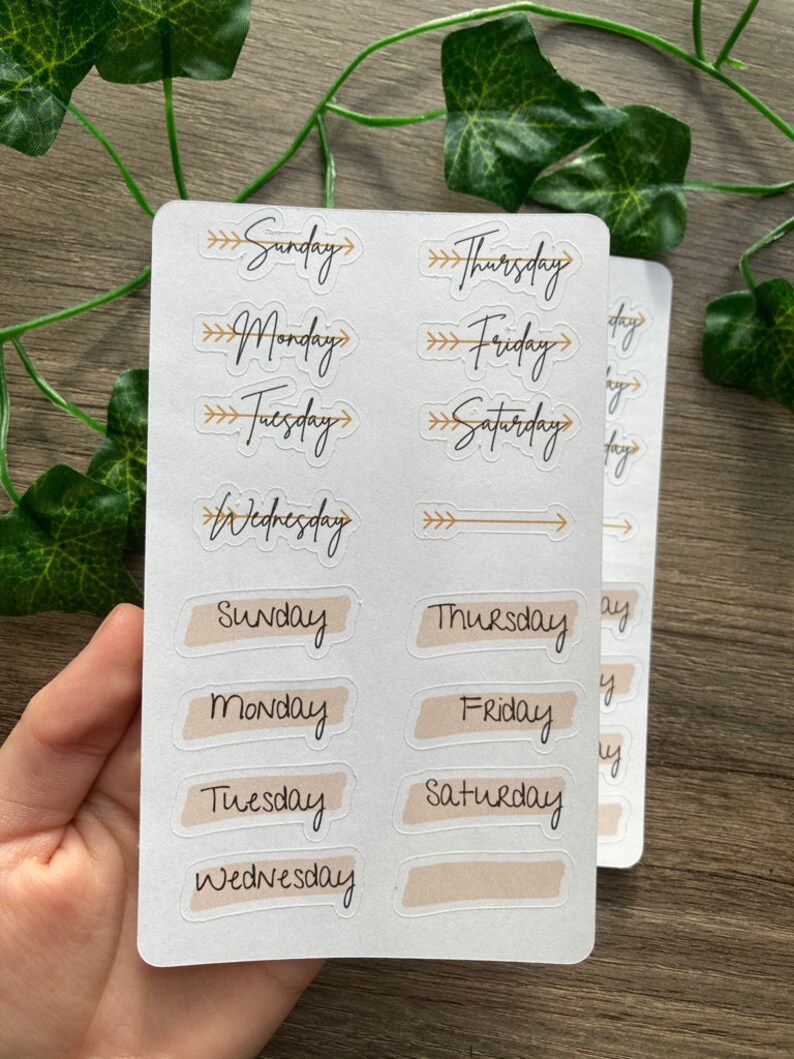 Sunday
Monday
Tuesday
Wednesday
Thursday
Friday
Saturday
Sunday
Monday
Tuesday
Wednesday
Thursday
Friday
Saturday